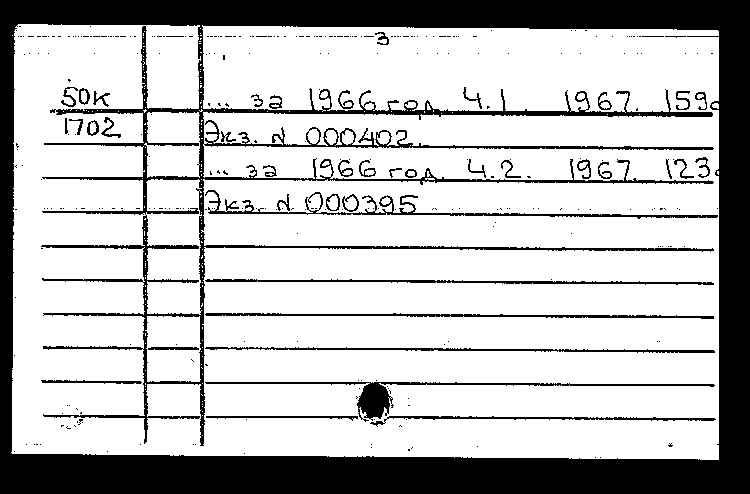 3
50К ... за 1966 год. Ч.1. 1967. 159с
1702 Экз. N 000402.
... за 1966 год. Ч.2. 1967. 123с
Экз. N 000395